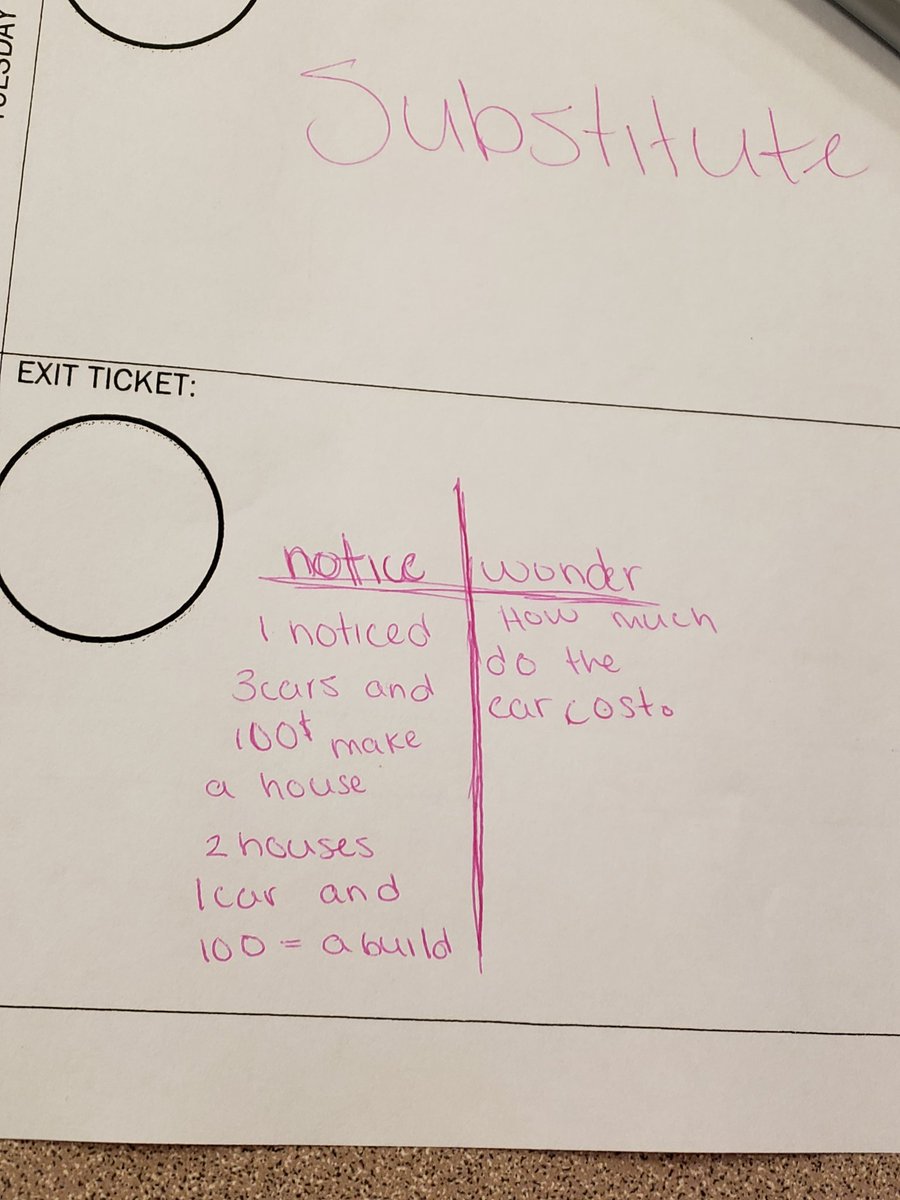 TUESDAY
Substitute
EXIT TICKET:
notice
wonder
I noticed
3cars and
100$ make
a house
2 houses
1car and
100 = a build
How much
do the
car cost.